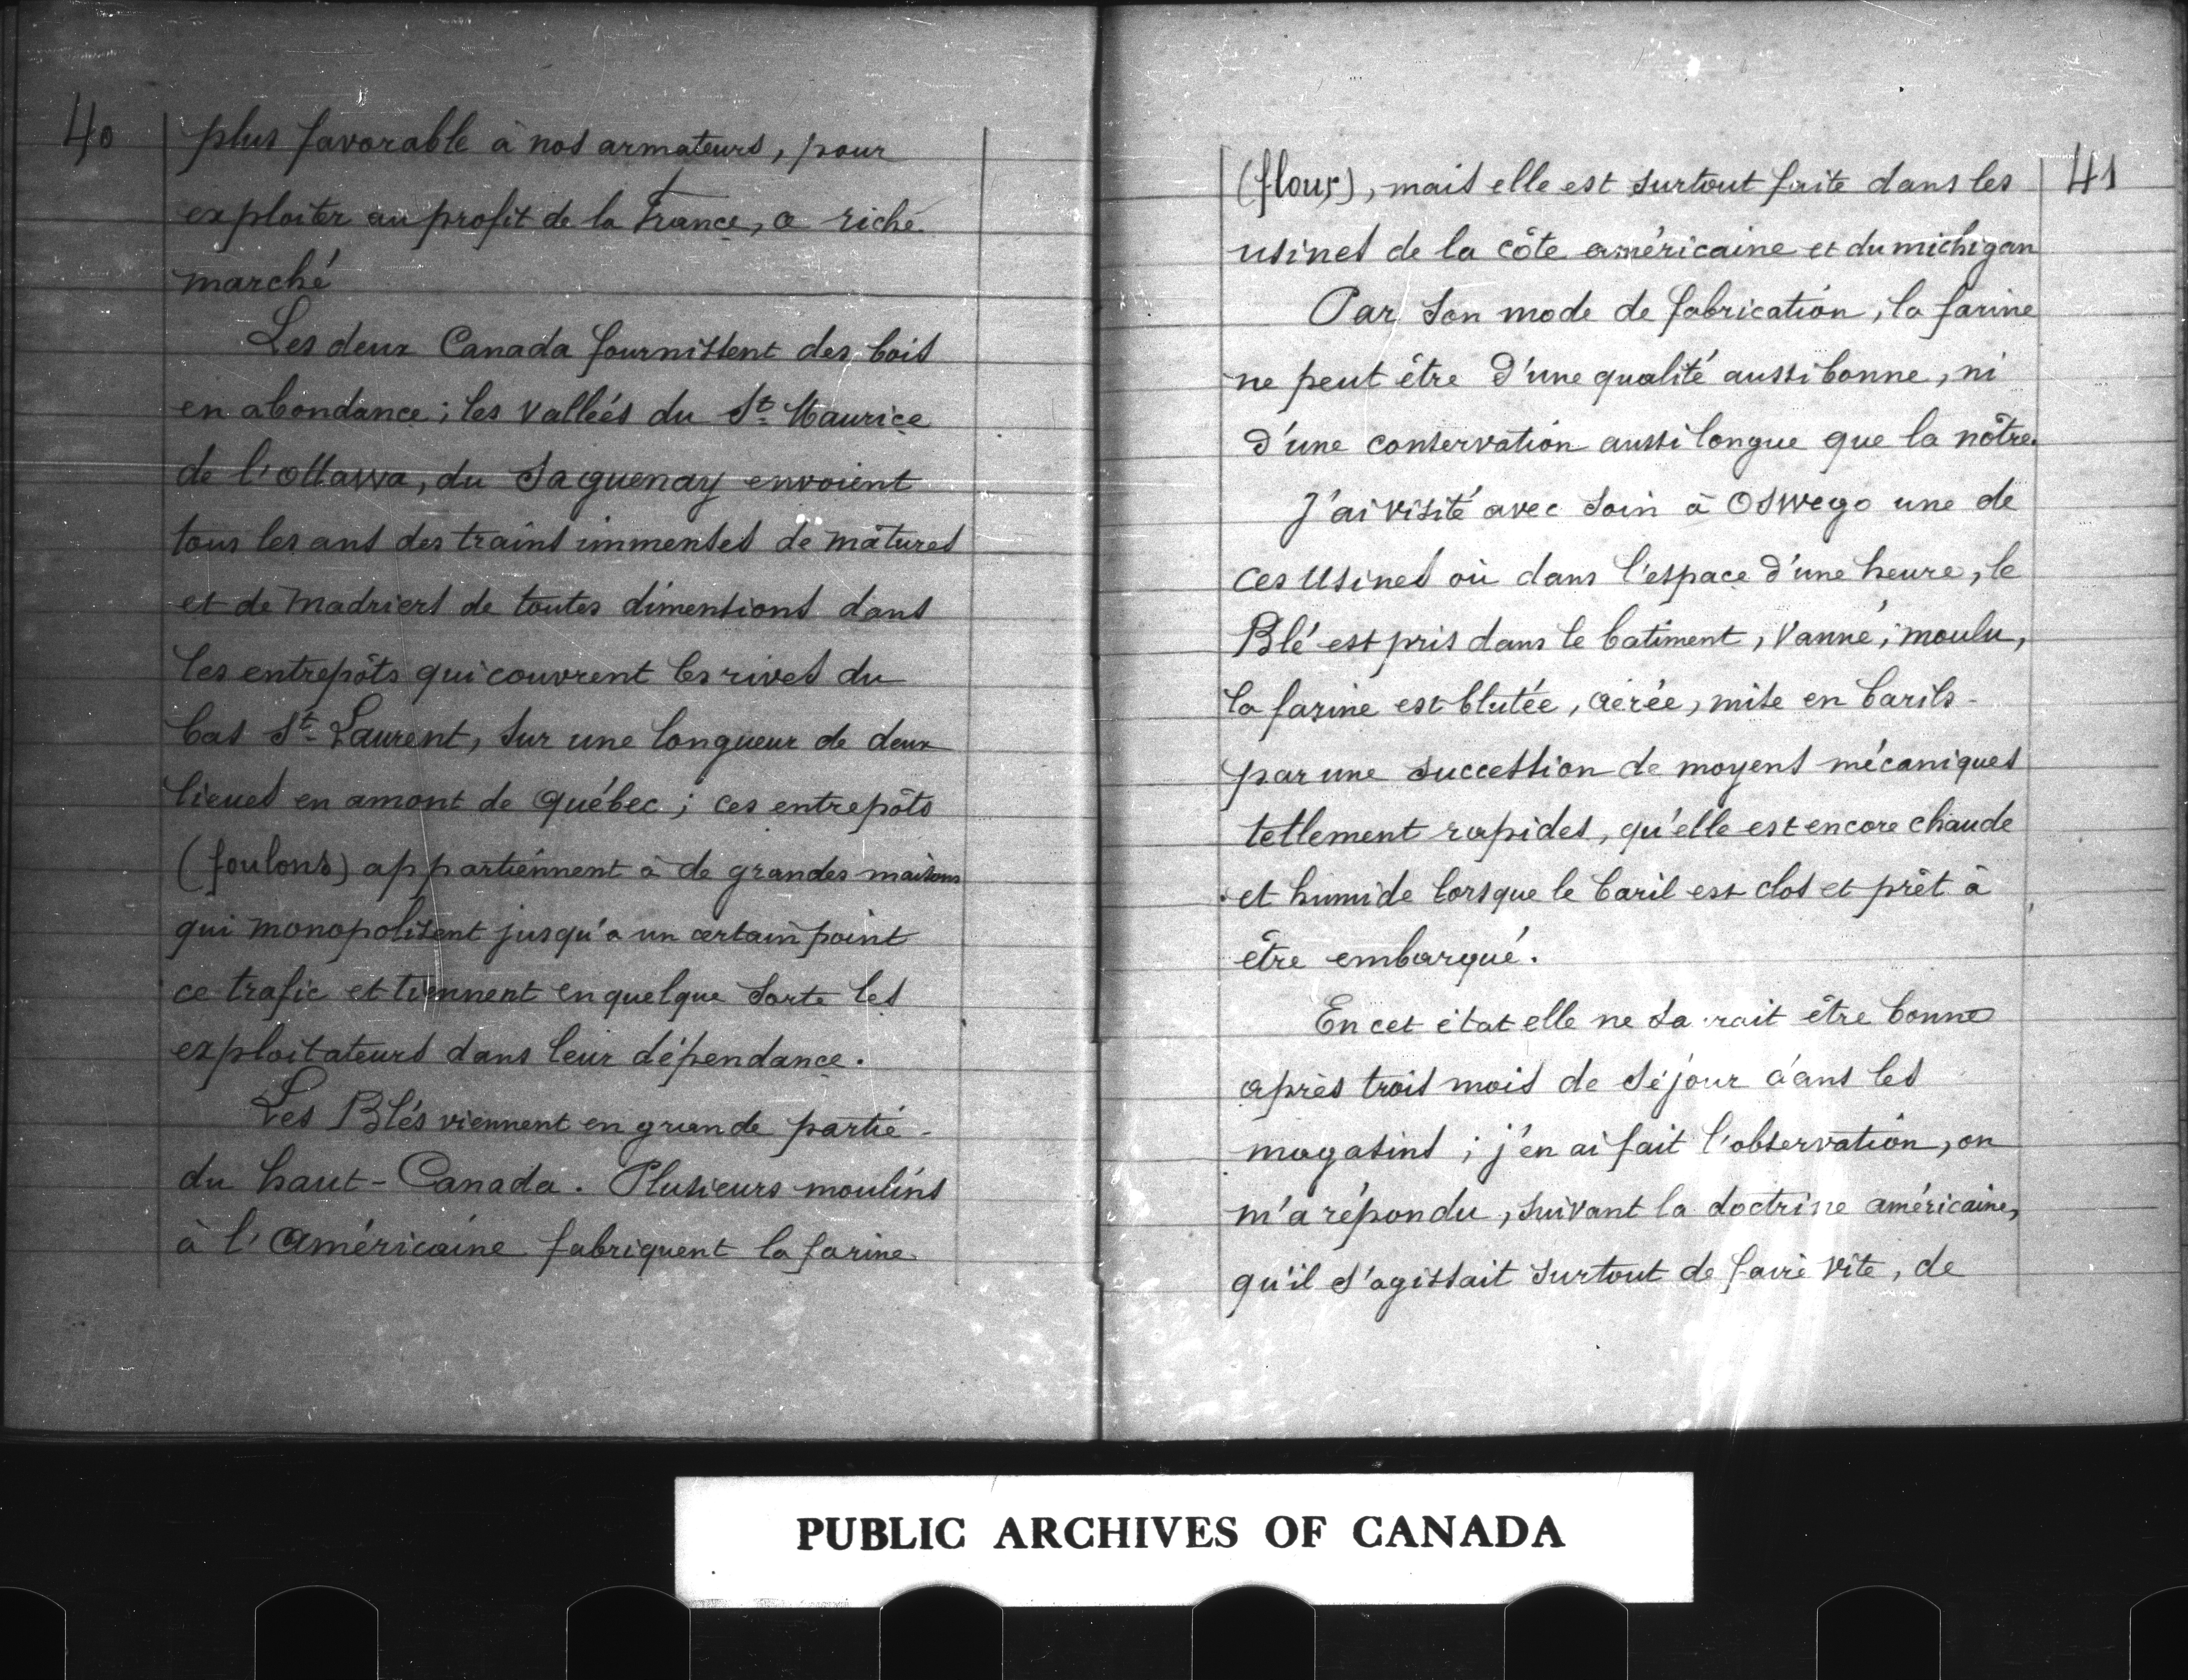 40
plus favorable à nos armateurs, pour
exploiter au profit de la France, ce riche
marché
Les deux Canada fournissent des bois
en abondance ; les vallées du St. Maurice
de l'Ottawa, du Saguenay envoient
tous les ans des trains immenses de mâtures
et de Madriers de toutes dimensions dans
les entrepôts qui couvrent les rives du
bas St. Laurent, sur une longueur de deux
lieues en amont de Québec ; ces entrepôts
(foulons) appartiennent à de grandes maisons
qui monopolisent jusqu'a un certain point
ce trafic et tiennent en quelque sorte les
exploitateurs dans leur dépendance.
Les Blés viennent en grande partie -
du haut-Canada. Plusieurs moulins
à l'Américaine fabriquent la farine
41
(flour), mais elle est surtout faite dans les
usines de la côte américaine et du michigan
Par son mode de fabrication, la farine
ne peut être d'une qualité aussi bonne, ni
d'une conservation aussi longue que la nôtre.
J'ai visité avec soin à Oswego une de
ces Usines où dans l'espace d'une heure, le
Blé est pris dans le batiment, vanné, moulu,
la farine est blutée, aérée, mise en barils -
par une succession de moyens mécaniques
tellement rapides, qu'elle est encore chaude
et humide lorsque le baril est clos et prêt à
être embarqué.
En cet état elle ne saurait être bonne
après trois mois de séjour dans les
magasins ; j'en ai fait l'observation, on
m'a répondu, suivant la doctrine américaine,
qu'il s'agissait surtout de faire vite, de
PUBLIC ARCHIVES OF CANADA